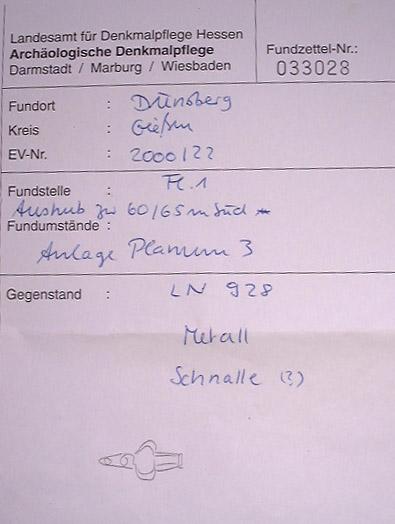 Landesamt für Denkmalpflege Hessen
Archäologische Denkmalpflege
Darmstadt / Marburg / Wiesbaden
Fundzettel-Nr.:
033028
Fundort : Dünsberg
Kreis : Gießen
EV-Nr. : 2000/22
Fundstelle : Fl. 1
Aushub zw 60/65 m Süd
Fundumstände :
Anlage Planum 3
Gegenstand : LN 928
Metall
Schnalle (?)